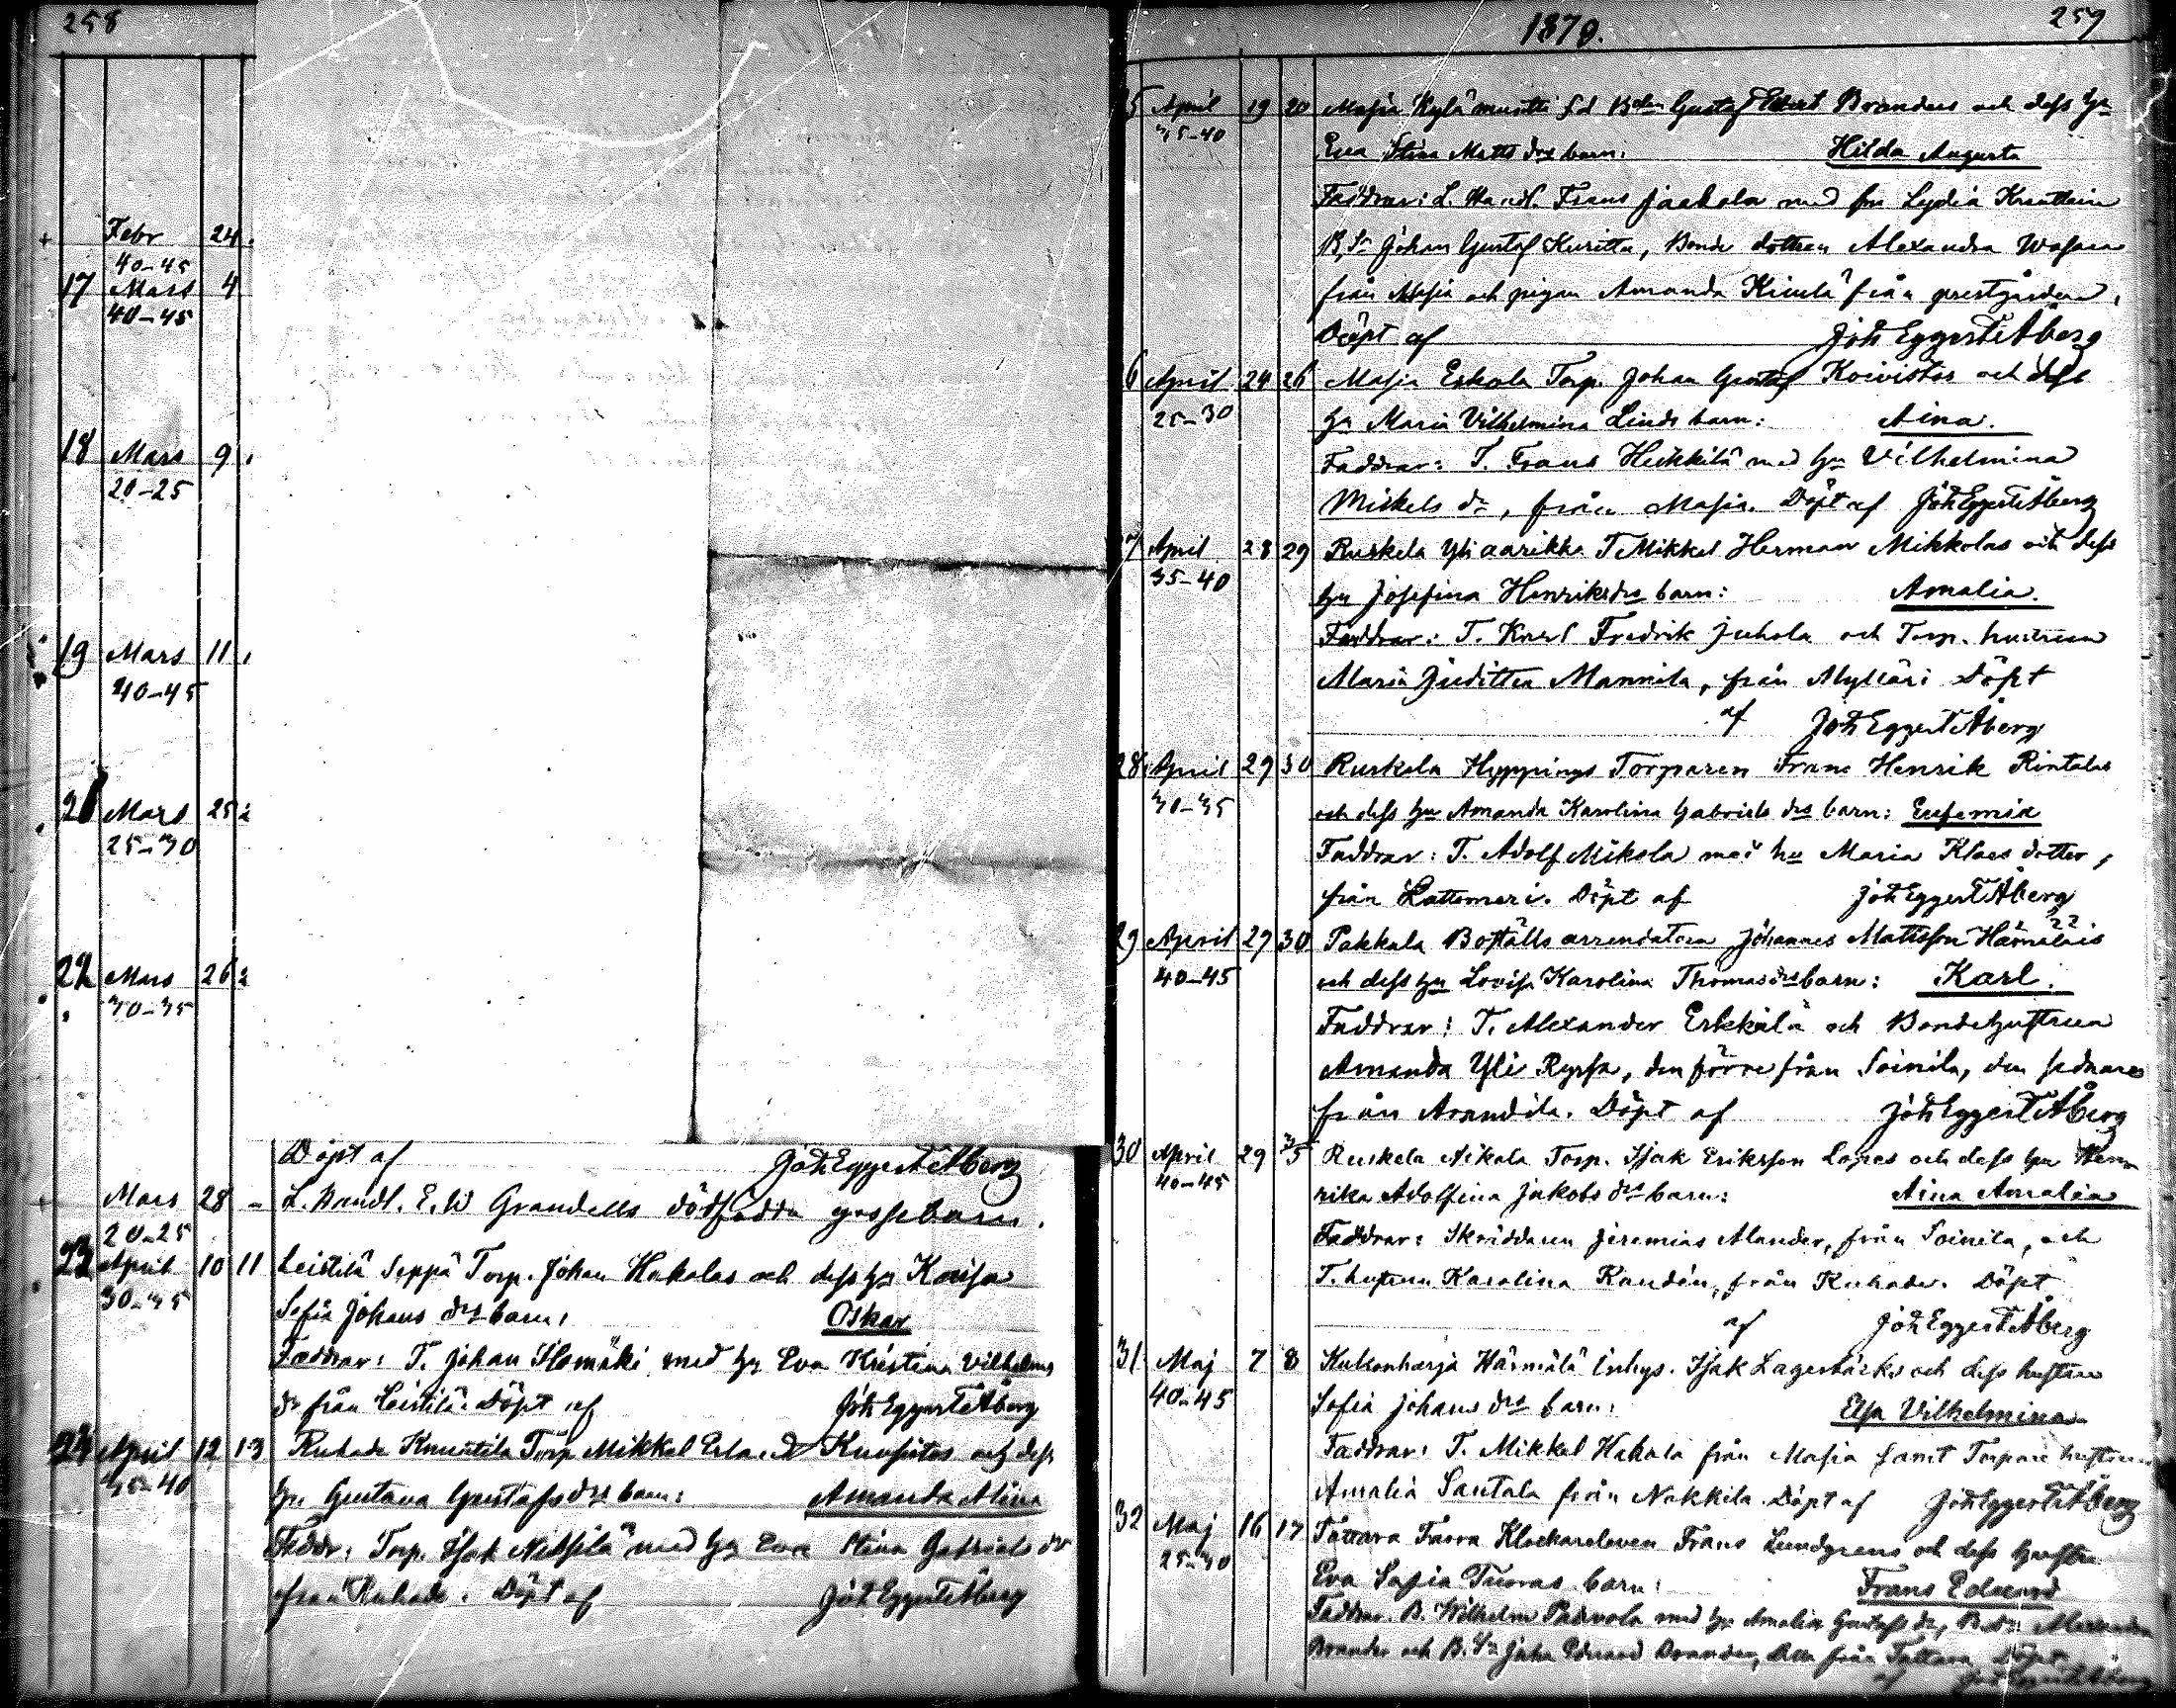 258
Febr 24
40-45
17 Mars 4
40-45
18 Mars 9
20-25
19 Mars 11
40-45
21 Mars 25
25-30
22 Mars 26
30-35
Döpt af Joh Eggert Åberg
Mars 28 - L. Handl. E. W Grandells dödfödda gossebarn.
20-25
23 April 10 11 Leistilä Seppä Torp. Johan Hakolas och dess hu Kaisa
30-35 Sofia Johans drs barn: Oskar
Faddrar: T. Johan Ilomäki med hu Eva Kristina Vilhelms
dr från Leistilä. Döpt af Joh Eggert Åberg
24 April 12 13 Ruhade Knuutila Torp Mikkel och dess
35-40 hu Gustava Gustafs drs barn: Amanda Alina
Faddr: Torp. Isak med hu Eva Stina Gabriels dr
från Ruhade. Döpt af Joh Eggert Åberg
1870. 259
25 April 19 20 Masia Kylämuotti Gustaf Branders och dess hu
35-40 Eva Stina Matts drs barn: Hilda Augusta
Faddrar: L. Handl. Frans Jaakola med fru Lydia
B. Sn Johan Gustaf Kuritta, Bonde dottren Alexandra
från Masia och pigan Amanda från prestgården,
Döpt af Joh Eggert Åberg
26 April 24 26 Masia Eskola Torp. Johan Gustaf Koivistos och dess
25-30 hu Maria Vilhelmina Linds barn: Aina.
Faddrar: T. Frans Heikkilä med hu Vilhelmina
Mickels dr, från Masia. Döpt af Joh Eggert Åberg
27 April 28 29 Ruskela Yliaarikka T Mikkel Herman Mikkolas och dess
35-40 hu Josefina Henriks drs barn: Amalia.
Faddrar: T. Karl Fredrik Juhola och Torp. hustrun
Maria Juditta Mannila, från Mylläri Döpt
af Joh Eggert Åberg
28 April 29 30 Ruskela Hyppings Torparen Frans Henrik Rintalas
30-35 och dess hu Amanda Karolina Gabriels drs barn: Eufemia
Faddrar: T. Adolf Mikola med hu Maria Klaes dotter,
från Lattomeri. Döpt af Joh Eggert Åberg
29 April 29 30 Pakkala Boställs arrendatorn Johannes Mattsson
40-45 och dess hu Lovisa Karolina Thomas drs barn: Karl.
Faddrar: T. Alexander Erkkilä och Bondehustrun
Amanda Yli Ryssä, den förre från Soinila, den sednare
från Arandila. Döpt af Joh Eggert Åberg
30 April 29 3/5 Ruskela Aikala Torp. Isak Eriksson och dess hu Hen
40-45 rika Adolfina Jakobs drs barn: Aina Amalia
Faddrar: Skräddaren Jeremias Alander, från Soinila, och
T. hustrun Karolina Randén, från Ruhade. Döpt
af Joh Eggert Åberg
31 Maj 7 8 Kukonharja Härmälä Inhys. Isak Lagerbäcks och dess hustru
40-45 Sofia Johans drs barn: Elsa Vilhelmina
Faddrar: T. Mikkel Hakala från Masia samt Torpare hustrun
Amalia Santala från Nakkila. Döpt af Joh Eggert Åberg
32 Maj 16 17 Tattara Klockareeleven Frans Lundgrens och dess hustru
25-30 Eva Sofia Tuoras barn: Frans Edvard
Faddrar. B. Wilhelm med hu Amalia Gustafs dr, B. dr Alexandra
Brander och B. Sn Johan Edvard Brander, alla från Tattara Döpt
af Joh Eggert Åberg